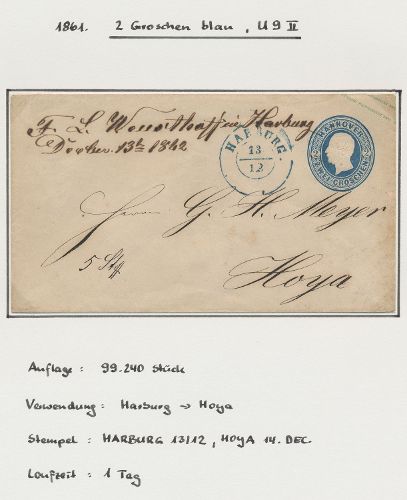 1861. 2 Groschen blau, U 9 II
F. L. in Harburg
13th 1862
HARBURG.
13
12
HANNOVER
ZWEI GROSCHEN
Herrn G. H. Meyer
Hoya
Auflage: 99.240 Stück
Verwendung: Harburg → Hoya
Stempel: HARBURG 13/12, HOYA 14. DEC.
Laufzeit: 1 Tag